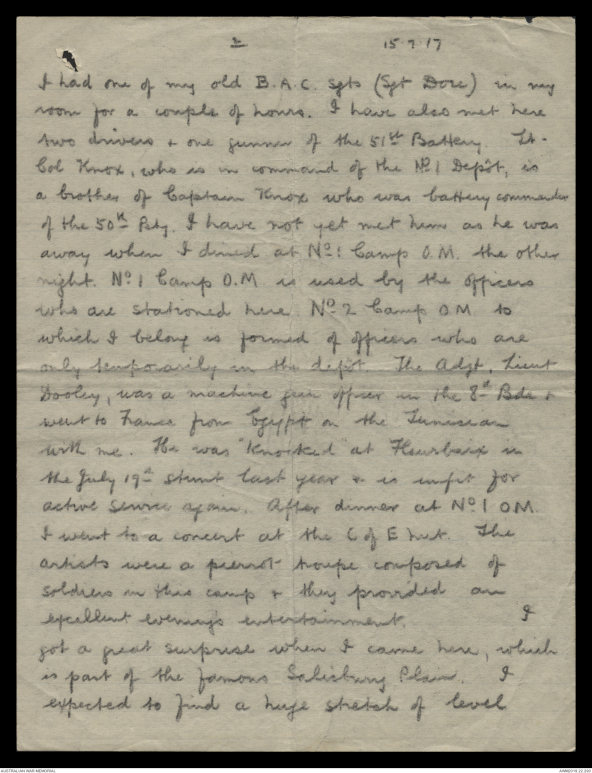 2 15.7.17
I had one of my old B.A.C. Sgts (Sgt Dore) in my
room for a couple of hours. I have also met here
two drivers & one gunner of the 51st Battery. Lt.
Col Knox, who is in command of the No 1 Depôt, is
a brother of Captain Knox who was battery commander
of the 50th Bty. I have not yet met him as he was
away when I dined at No 1 Camp O.M. the other
night. No 1 Camp O.M is used by the officers
who are stationed here. No 2 Camp OM to
which I belong is formed of officers who are
only temporarily in the depôt. The Adjt, Lieut
Dooley, was a machine gun officer in the 8th Bde &
went to France from Egypt on the Tunisian
with me. He was "knocked" at Fleurbaix in
the July 19th stunt last year & is unfit for
active service again. After dinner at No 1 OM.
I went to a concert at the C of E hut. The
artists were a pierrot troupe composed of
soldiers in this camp & they provided an
excellent evening's entertainment. I
got a great surprise when I came here, which
is part of the famous Salisbury Plain. I
expected to find a huge stretch of level
AUSTRALIAN WAR MEMORIAL